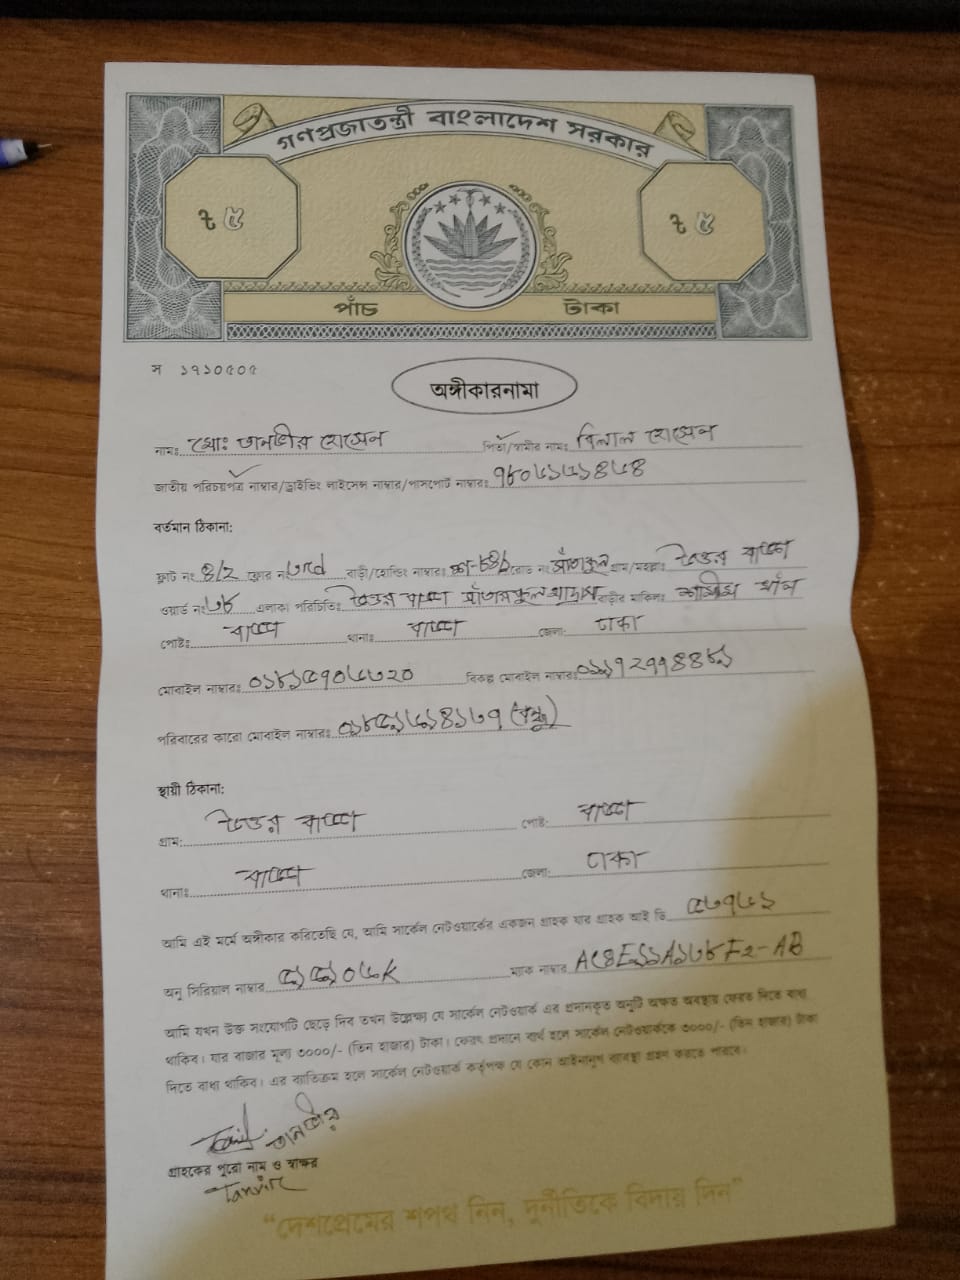 গণপ্রজাতন্ত্রী বাংলাদেশ সরকার
৳ ৫ ৳ ৫
পাঁচ টাকা
স ১৭১০৫০৫
অঙ্গীকারনামা
নামঃ মোঃ তানভীর হোসেন পিতা/স্বামীর নামঃ বিলাল হোসেন
জাতীয় পরিচয়পত্র নাম্বার/ড্রাইভিং লাইসেন্স নাম্বার/পাসপোর্ট নাম্বারঃ
বর্তমান ঠিকানা:
ফ্লাট নং ৪/২ ফ্লোর নং ৩rd বাড়ী/হোল্ডিং নাম্বারঃ রোড নং সাঁতারকুল গ্রাম/মহল্লাঃ উত্তর বাড্ডা
ওয়ার্ড নংঃ ৩৮ এলাকা পরিচিতিঃ উত্তর বাড্ডা সাঁতারকুল বাড়ীর মালিকঃ
পোষ্টঃ বাড্ডা থানাঃ বাড্ডা জেলা: ঢাকা
মোবাইল নাম্বারঃ বিকল্প মোবাইল নাম্বারঃ
পরিবারের কারো মোবাইল নাম্বারঃ (বন্ধু)
স্থায়ী ঠিকানা:
গ্রাম: উত্তর বাড্ডা পোষ্ট: বাড্ডা
থানাঃ বাড্ডা জেলা: ঢাকা
আমি এই মর্মে অঙ্গীকার করিতেছি যে, আমি সার্কেল নেটওয়ার্কের একজন গ্রাহক যার গ্রাহক আই ডি
অনু সিরিয়াল নাম্বার ম্যাক নাম্বার
আমি যখন উক্ত সংযোগটি ছেড়ে দিব তখন উল্লেক্ষ্য যে সার্কেল নেটওয়ার্ক এর প্রদানকৃত অনুটি অক্ষত অবস্থায় ফেরত দিতে বাধ্য
থাকিব। যার বাজার মূল্য ৩০০০/- (তিন হাজার) টাকা। ফেরৎ প্রদানে ব্যর্থ হলে সার্কেল নেটওয়ার্ককে ৩০০০/- (তিন হাজার) টাকা
দিতে বাধ্য থাকিব। এর ব্যতিক্রম হলে সার্কেল নেটওয়ার্ক কর্তৃপক্ষ যে কোন আইনানুগ ব্যবস্থা গ্রহণ করতে পারবে।
তানভীর
গ্রাহকের পুরো নাম ও স্বাক্ষর
Tanvir
“দেশপ্রেমের শপথ নিন, দুর্নীতিকে বিদায় দিন”